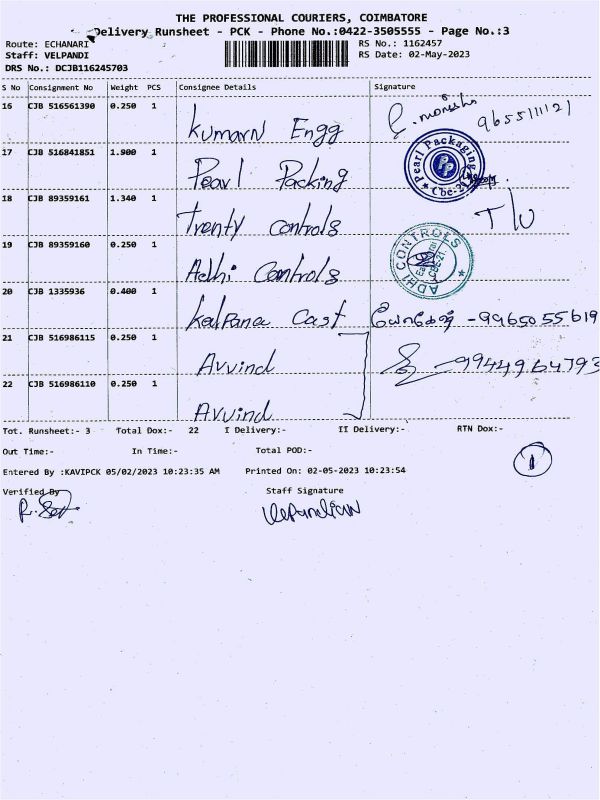 THE PROFESSIONAL COURIERS, COIMBATORE
Delivery Runsheet - PCK - Phone No.:0422-3505555 - Page No.:3
Route: ECHANARI
RS No.: 1162457
Staff: VELPANDI
RS Date: 02-May-2023
DRS No.: DCJB116245703
S No Consignment No Weight PCS Consignee Details Signature
16 CJB 516561390 0.250 1
Kumarn Engg
9655111121
17 CJB 516841851 1.900 1
Pearl Packing
Pearl Packaging
PP
Cbe-21
18 CJB 89359161 1.340 1
Trenty controls
T/U
19 CJB 89359160 0.250 1
Adhi Controls
ADHI CONTROLS
CBE-21.
20 CJB 1335936 0.400 1
Kalpana Cast
-9965055619
21 CJB 516986115 0.250 1
Arvind
-9944964793
22 CJB 516986110 0.250 1
Arvind
Tot. Runsheet:- 3 Total Dox:- 22 I Delivery:- II Delivery:- RTN Dox:-
Out Time:- In Time:- Total POD:-
1
Entered By :KAVIPCK 05/02/2023 10:23:35 AM Printed On: 02-05-2023 10:23:54
Verified By Staff Signature
Velpandian